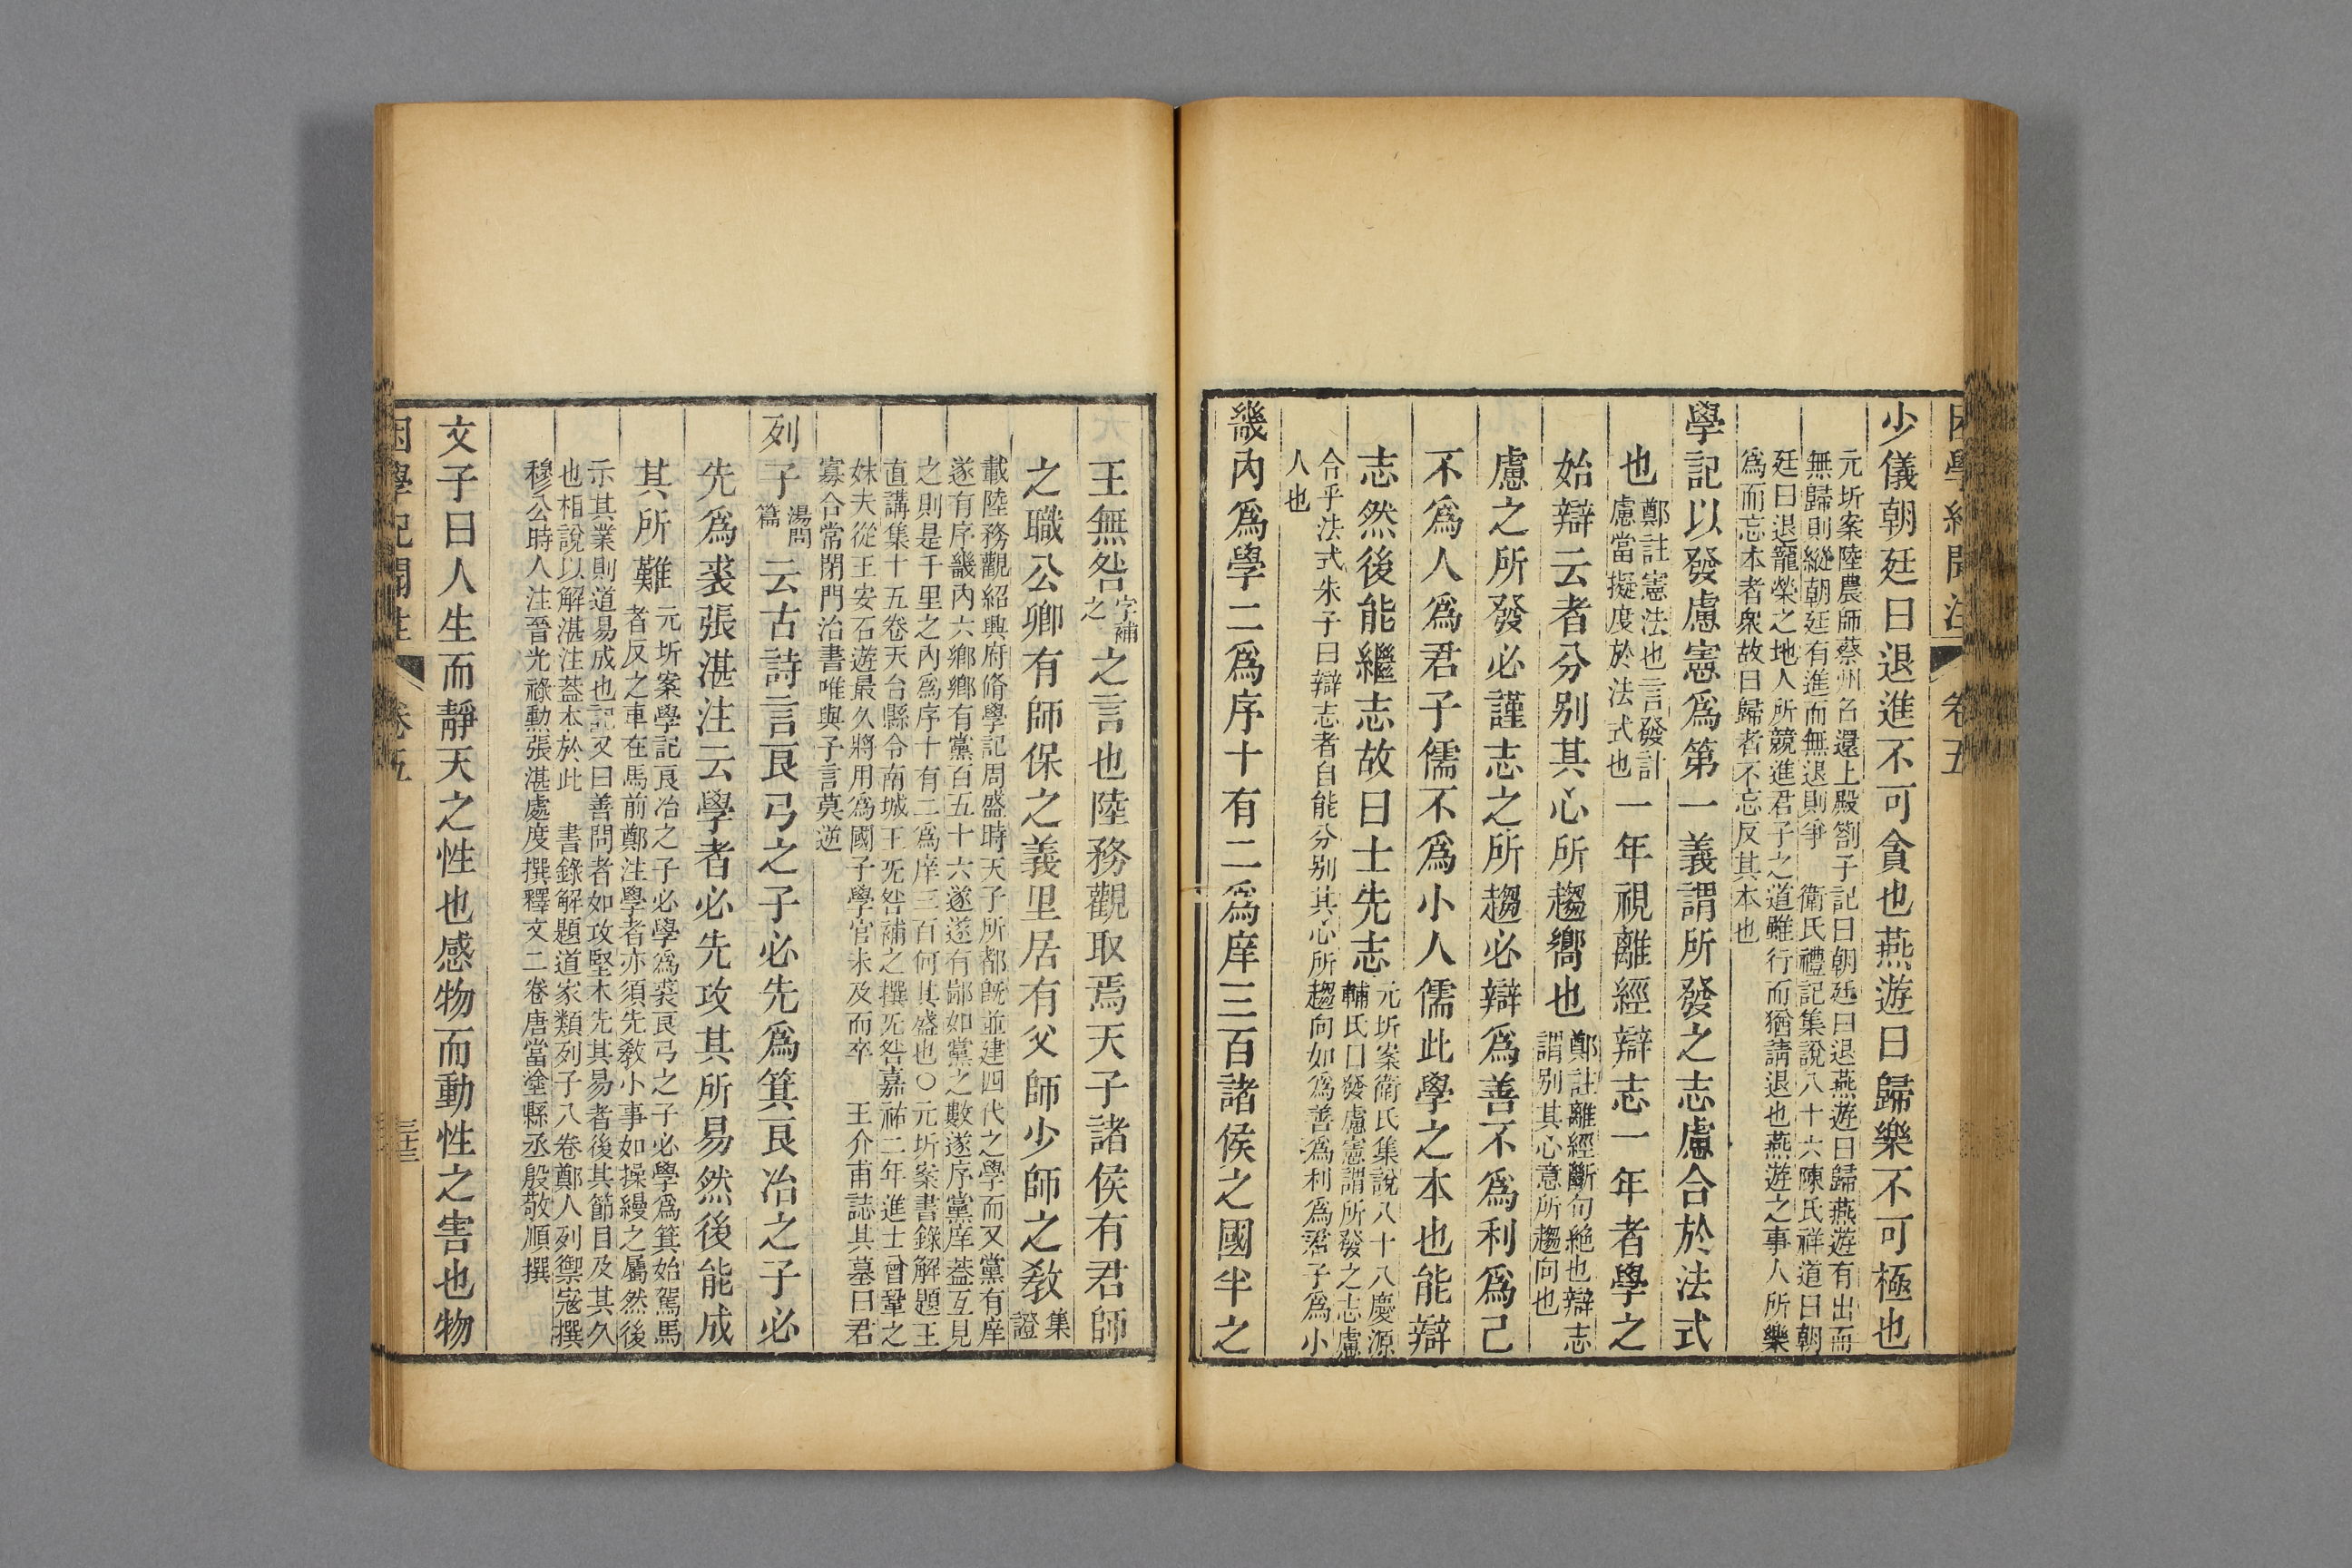 困學紀聞注 卷五
少儀朝廷曰退進不可貪也燕遊曰歸樂不可極也
元圻案陸農師蔡州召還上殿劄子記曰朝廷曰退燕遊曰歸燕遊有出而
無歸則縱朝廷有進而無退則爭 衛氏禮記集說八十六陳氏祥道曰朝
廷曰退寵榮之地人所競進君子之道難行而猶請退也燕遊之事人所樂
爲而忘本者衆故曰歸者不忘反其本也
學記以發慮憲爲第一義謂所發之志慮合於法式
也鄭註憲法也言發計
慮當擬度於法式也一年視離經辯志一年者學之
始辯云者分別其心所趨嚮也鄭註離經斷句絶也辯志
謂別其心意所趨向也
慮之所發必謹志之所趨必辯爲善不爲利爲己
不爲人爲君子儒不爲小人儒此學之本也能辯
志然後能繼志故曰士先志元圻案衛氏集說八十八慶源
輔氏曰發慮憲謂所發之志慮
合乎法式朱子曰辯志者自能分别其心所趨向如爲善爲利爲君子爲小
人也
畿內爲學二爲序十有二爲庠三百諸侯之國半之
王無咎字補
之之言也陸務觀取焉天子諸侯有君師
之職公卿有師保之義里居有父師少師之敎集
證
載陸務觀紹興府脩學記周盛時天子所都旣並建四代之學而又黨有庠
遂有序畿內六鄉鄉有黨百五十六遂遂有鄙如黨之數遂序黨庠葢互見
之則是千里之內爲序十有二爲庠三百何其盛也○元圻案書錄解題王
直講集十五卷天台縣令南城王旡咎補之撰旡咎嘉祐二年進士曾鞏之
妹夫從王安石遊最久將用爲國子學官未及而卒 王介甫誌其墓曰君
寡合常閉門治書唯與予言莫逆
列子湯問
篇云古詩言良弓之子必先爲箕良冶之子必
先爲裘張湛注云學者必先攻其所易然後能成
其所難元圻案學記良冶之子必學爲裘良弓之子必學爲箕始駕馬
者反之車在馬前鄭注學者亦須先敎小事如操縵之屬然後
示其業則道易成也記又曰善問者如攻堅木先其易者後其節目及其久
也相說以解湛注葢本於此 書錄解題道家類列子八卷鄭人列禦寇撰
穆公時人注晉光祿勲張湛處度撰釋文二卷唐當塗縣丞殷敬順撰
文子曰人生而靜天之性也感物而動性之害也物
困學紀聞注 卷五 三十三